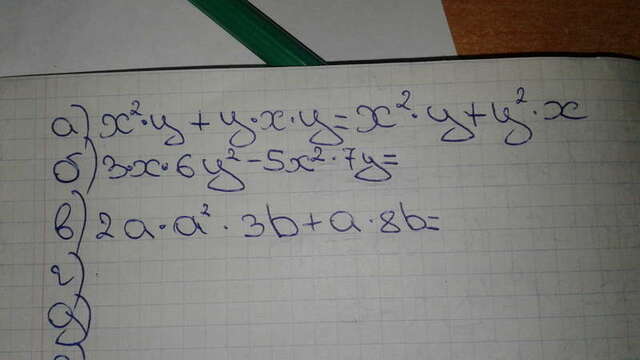 а) x²·y + y·x·y = x²·y + y²·x
б) 3·x·6y² - 5x²·7y =
в) 2a·a²·3b + a·8b =
г)
д)